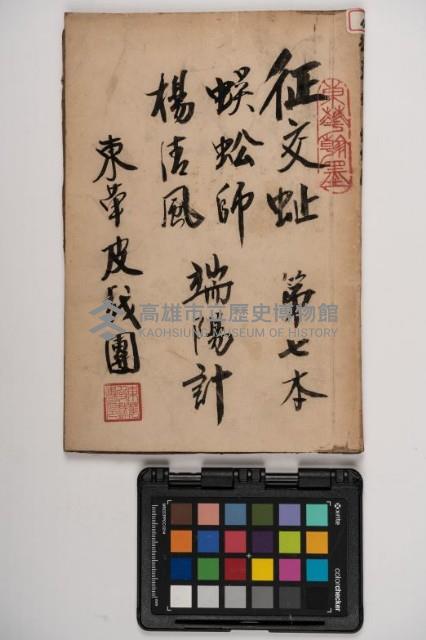 征交趾 第七本
蜈蚣師 端陽計
楊清風
東華皮戲團
東華翰墨
高雄市立歷史博物館
KAOHSIUNG MUSEUM OF HISTORY
x-rite
colorchecker